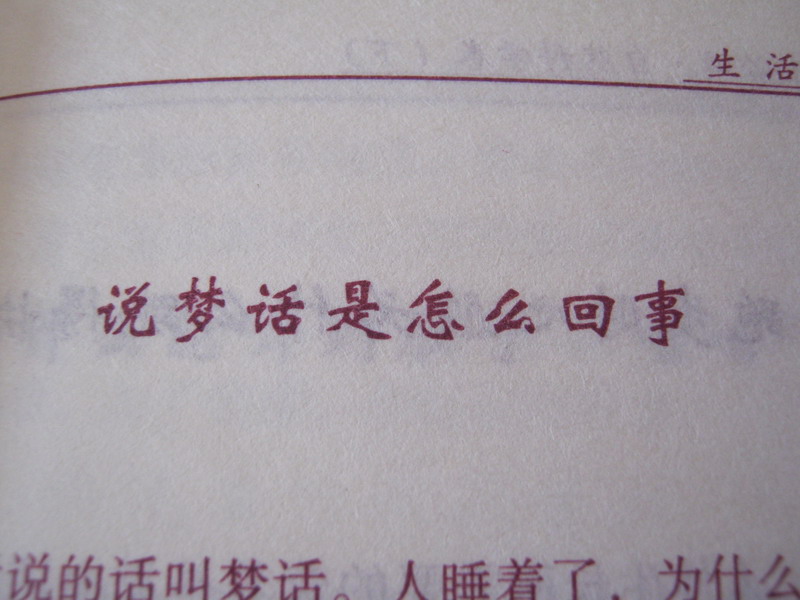 生活
说梦话是怎么回事
说的话叫梦话。人睡着了，为什么